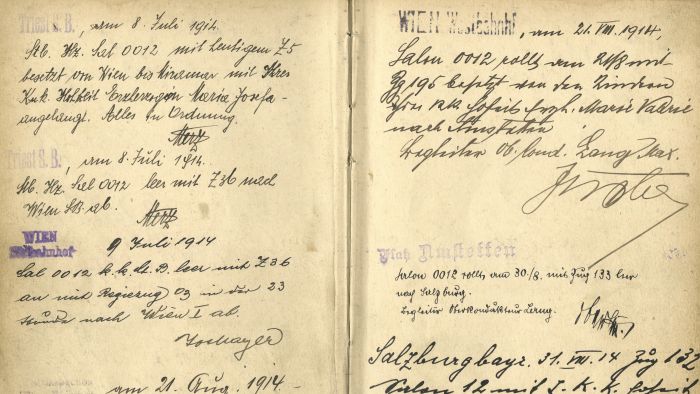 Triest S. B., am 8. Juli 1914.
Stb. Hz. Sal 0012 mit heutigem Z 5
besetzt von Wien bis Miramar mit Ihrer
Kuk. Hoheit Erzherzogin Maria Josefa
angelangt. Alles in Ordnung.
Merz
Triest S. B., am 8. Juli 1914.
Stb. Hz. Sal 0012 leer mit Z 36 nach
Wien SB ab.
Merz
WIEN
Südbahnhof 9 Juli 1914
Sal 0012 k.k. St. B. leer mit Z 36
an mit Regiezug 03 in der 23
Stunde nach Wien I ab.
am 21. Aug. 1914.-
WIEN Westbahnhf, am 21. VIII. 1914,
Salon 0012 rollt am 21/8 mit
Zg 195 besetzt von den Kindern
Ihrer kk Hoheit Erzh. Marie Valerie
nach Amstetten
Begleiter Ob. Kond. Lang Max.
Platz Amstetten
Salon 0012 rollt am 30/8. mit Zug 133 leer
nach Salzburg.
Begleiter Oberkondukteur
Salzburg bayr. 31. VIII. 14 Zug 132
Salon 12 mit I. K. K. Hoheit